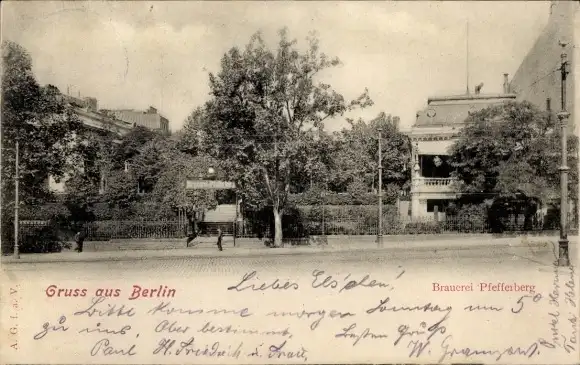 Gruss aus Berlin
Brauerei Pfefferberg
Liebes Els'chen!
Bitte komme morgen Sonntag um 5⁰
zu uns. Aber bestimmt. Besten Gruß
Paul H. Friedrich u. Frau, W.
A. G. i. V.